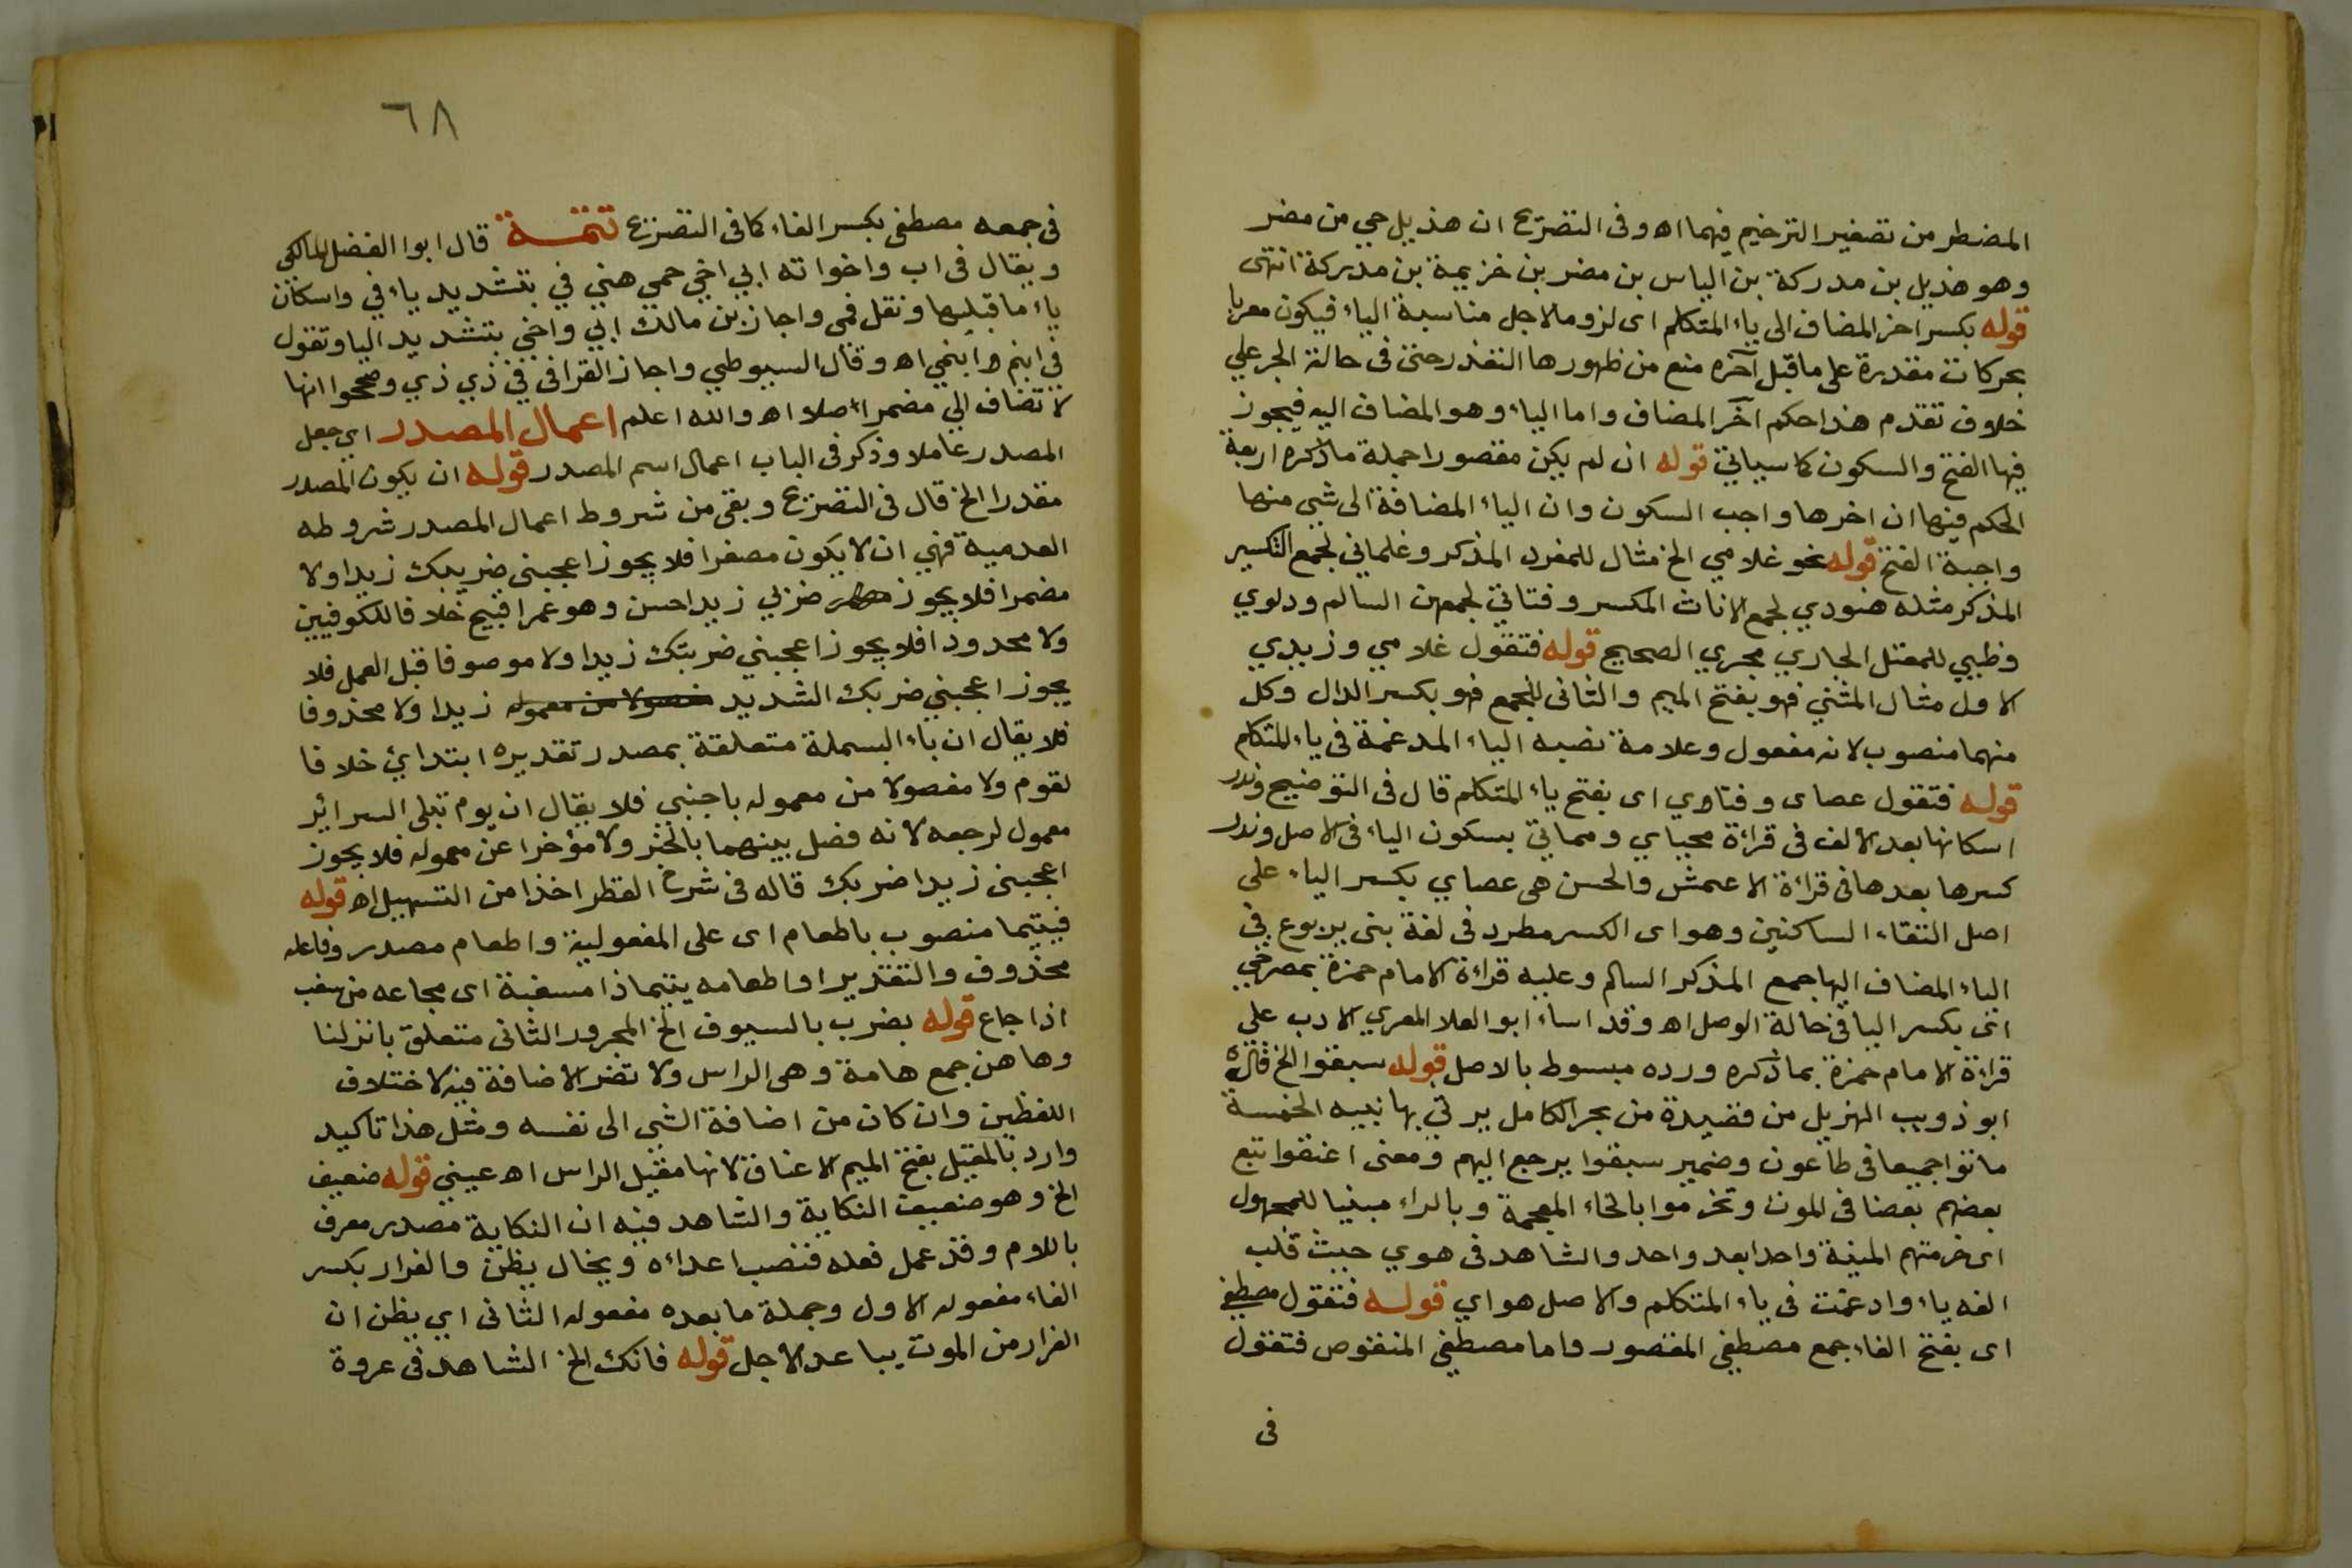 المضطر من تصغير الترخيم فيهما اه وفى التصريح ان هذيل حي من مضر
وهو هذيل بن مدركة بن الياس بن مضر بن خزيمة بن مدركة انتهى
قوله بكسر اخر المضاف الى ياء المتكلم اى لزوما لاجل مناسبة الياء فيكون معربا
بحركات مقدرة على ما قبل آخره منع من ظهورها التعذر حتى فى حالة الجر علي
خلاف تقدم هذا حكم اخر المضاف واما الياء وهو المضاف اليه فيجوز
فيها الفتح والسكون كما سياتي قوله ان لم يكن مقصورا جملة ما ذكره اربعة
الحكم فيها ان اخرها واجب السكون وان الياء المضافة الى شي منها
واجبة الفتح قوله نحو غلامي الخ مثال للمفرد المذكر وغلماني لجمع التكسير
المذكر مثله هنودي لجمع الاناث المكسر وفتاتي لجمعهن السالم ودلوي
وظبيي للمعتل الجاري مجري الصحيح قوله فتقول غلامي وزيدي
الاول مثال المثني فهو بفتح الميم والثانى للجمع فهو بكسر الدال وكل
منهما منصوب لانه مفعول وعلامة نصبه الياء المدغمة فى ياء المتكلم
قوله فتقول عصاى وفتاوي اى بفتح ياء المتكلم قال فى التوضيح وندر
اسكانها بعد الالف فى قراءة محياي ومماتي بسكون الياء فى الاصل وندر
كسرها بعدها فى قراءة الاعمش والحسن هى عصاي بكسر الياء على
اصل التقاء الساكنين وهو اى الكسر مطرد فى لغة بنى يربوع في
الياء المضاف اليها جمع المذكر السالم وعليه قراءة الامام حمزة بمصرخي
اني بكسر اليا فى حالة الوصل اه وقد اساء ابو العلا المعري الادب على
قراءة الامام حمزة بما ذكره ورده مبسوط بالاصل قوله سبقوا الخ قاله
ابو ذويب الهزيل من قصيدة من بحر الكامل يرثي بها نبيه الخمسة
ماتوا جميعا فى طاعون وضمير سبقوا يرجع اليهم ومعنى اعنقوا تبع
بعضهم بعضا فى الموت وتخرموا بالخاء المعجمة وبالراء مبنيا للمجهول
اى خرمتهم المنية واحدا بعد واحد والشاهد فى هوي حيث قلب
الفه ياء وادغمت فى ياء المتكلم والاصل هواي قوله فتقول مصطفي
اى بفتح الفاء جمع مصطفي المقصور واما مصطفي المنقوص فتقول
فى
٦٨
فى جمعه مصطفى بكسر الفاء كما فى التصريح تتمة قال ابوا الفضل المالكى
ويقال فى اب واخواته ابي اخي حمي هني في بتشديد ياء في واسكان
ياء ما قبليها ونقل فمى واجاز بن مالك ابي واخي بتشديد اليا وتقول
في ابنم ابنمي اه وقال السيوطي واجاز الفرا في في ذي ذي وصححوا انها
لا تضاف الي مضمر اصلا اه والله اعلم اعمال المصدر اي جعل
المصدر عاملا وذكر فى الباب اعمال اسم المصدر قوله ان يكون المصدر
مقدرا الخ قال فى التصريح وبقى من شروط اعمال المصدر شروطه
العدمية فهي ان لا يكون مصغرا فلا يجوز اعجبنى ضريبك زيدا ولا
مضمرا فلا يجوز ضربي زيدا حسن وهو عمرا قبيح خلافا للكوفيين
ولا محدودا فلا يجوز اعجبني ضربتك زيدا ولا موصوفا قبل العمل فلا
يجوز اعجبني ضربك الشديد زيدا ولا محذوفا
فلا يقال ان باء البسملة متعلقة بمصدر تقديره ابتداي خلافا
لقوم ولا مفصولا من معموله باجنبي فلا يقال ان يوم تبلى السرائر
معمول لرجعه لانه فصل بينهما بالخبر ولا مؤخرا عن معموله فلا يجوز
اعجبنى زيدا ضربك قاله فى شرح القطر اخذا من التسهيل اه قوله
فيتيما منصوب باطعام اى على المفعولية واطعام مصدر وفاعله
محذوف والتقدير او اطعامه يتيما ذا مسغبة اى مجاعه من سغب
اذا جاع قوله بضرب بالسيوف الخ المجرور الثانى متعلق بانزلنا
وها هن جمع هامة وهى الراس ولا تضر الاضافة فيه لاختلاف
اللفظين وان كان من اضافة الشى الى نفسه ومثل هذا تاكيد
وارد بالمقيل بفتح الميم الاعناق لانها مقيل الراس اه عيني قوله ضعيف
الخ وهو ضعيف النكاية والشاهد فيه ان النكاية مصدر معرف
باللام وقد عمل فعله فنصب اعداءه ويخال يظن والفرار بكسر
الفاء مفعوله الاول وجملة ما بعده مفعوله الثانى اي يظن ان
الفرار من الموت يباعد الاجل قوله فانك الخ الشاهد فى عروة